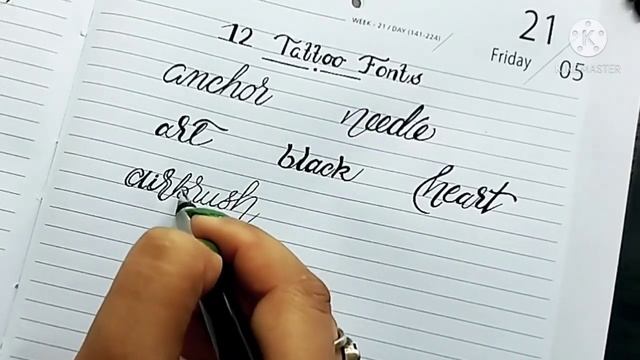 WEEK - 21 / DAY (141-224)
21
Friday
05
KINEMASTER
12 Tattoo Fonts
anchor
needle
art
black
heart
airbrush